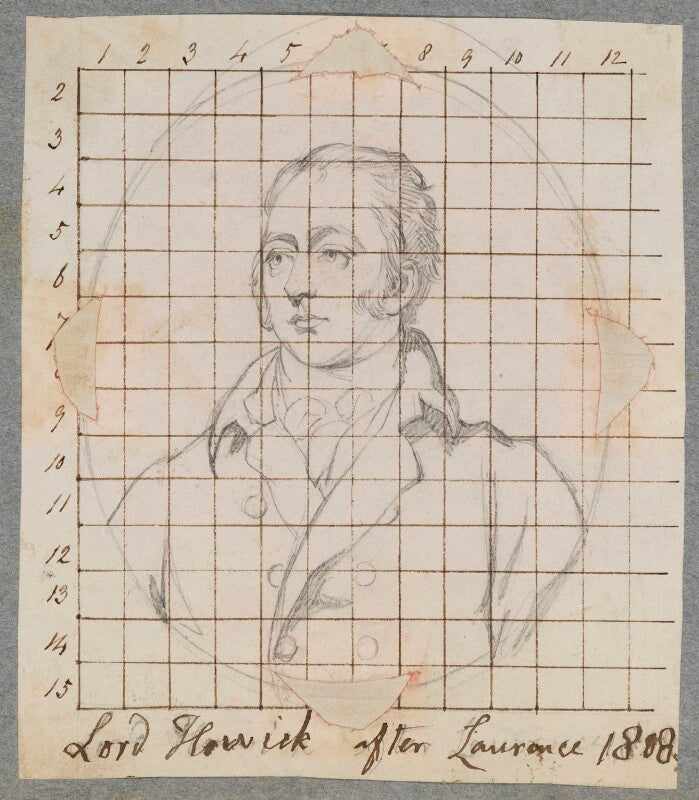 1 2 3 4 5 8 9 10 11 12
2
3
4
5
6
7
9
10
11
12
13
14
15
Lord Howick after Laurence 1808.